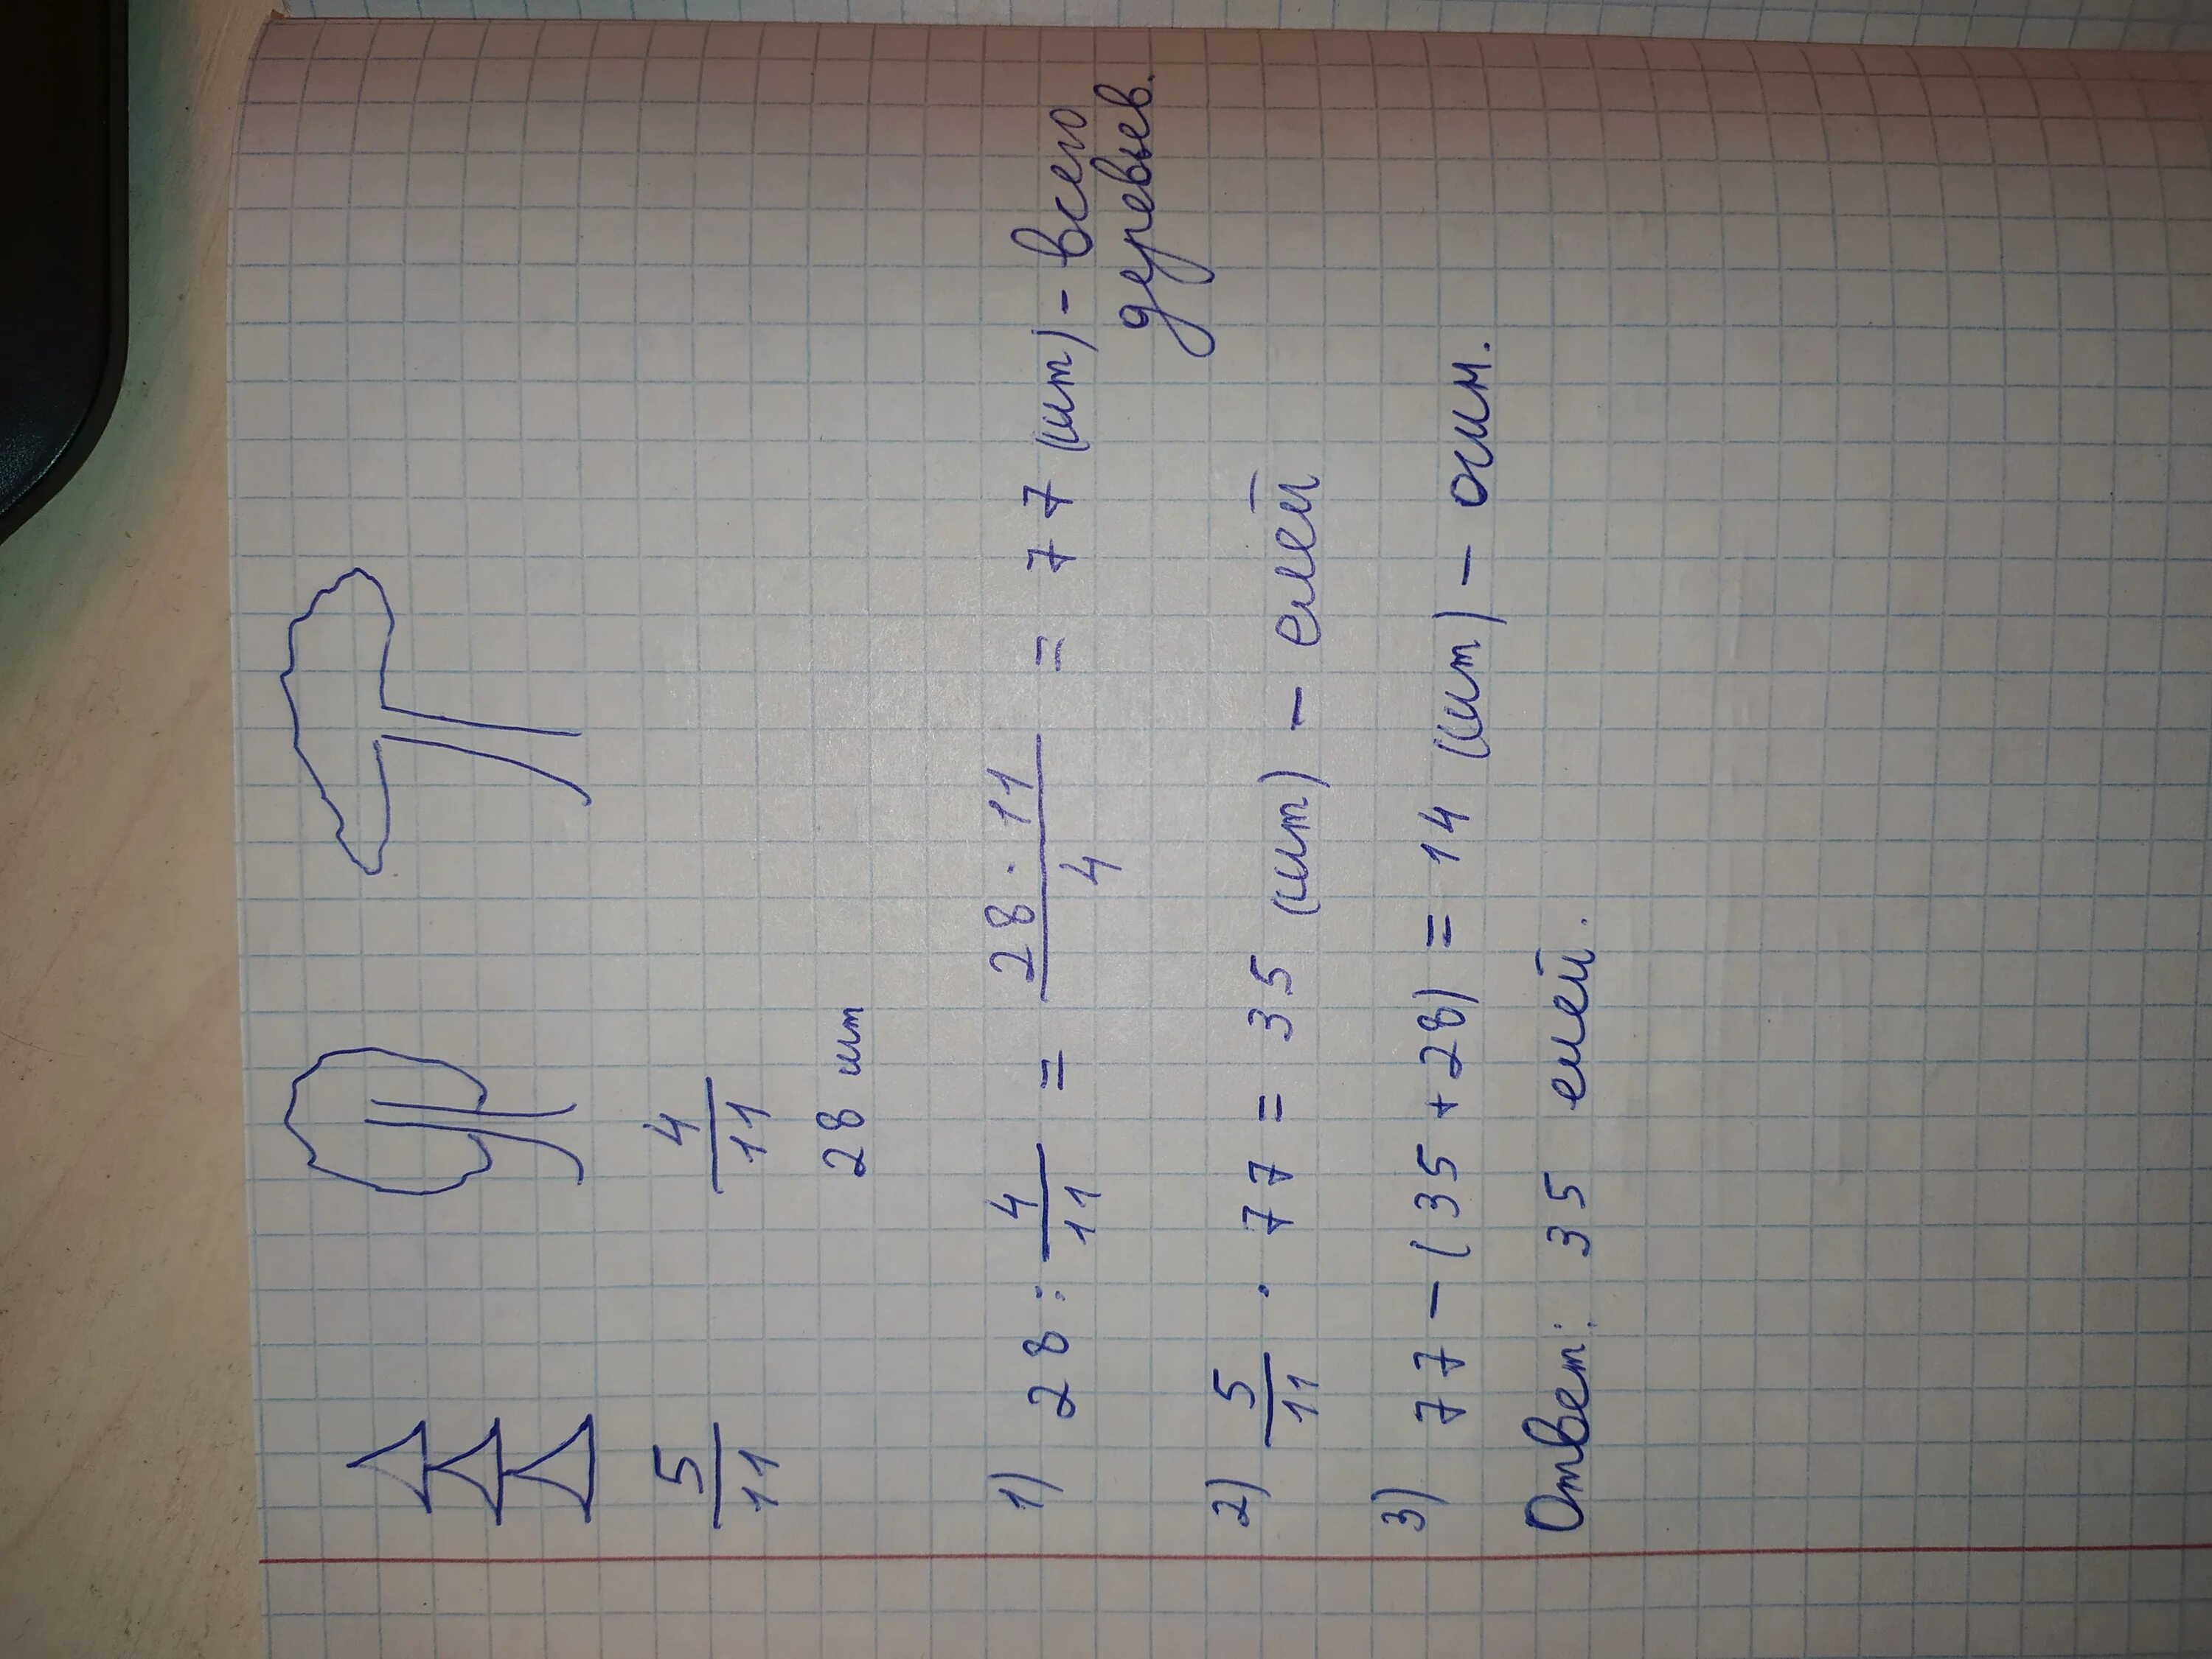 5/11 4/11
28 шт
1) 28 : 4/11 = 28 · 11/4 = 77 (шт) - всего
деревьев.
2) 5/11 · 77 = 35 (шт) - елей
3) 77 - (35 + 28) = 14 (шт) - осин.
Ответ: 35 елей.